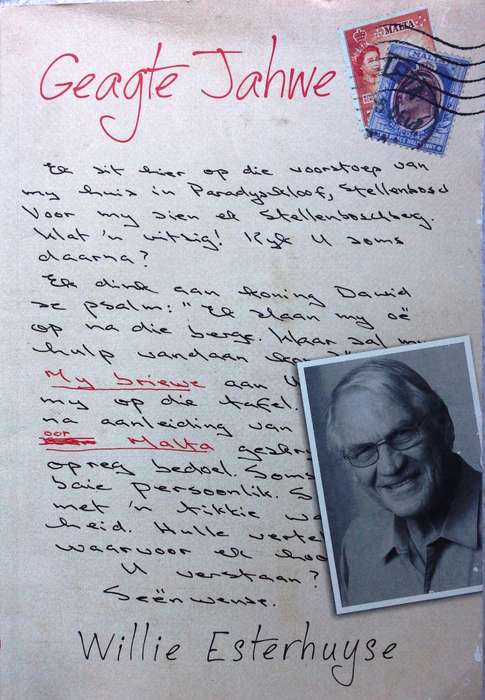 Geagte Jahwe
MALTA
MALTA
Ek sit hier op die voorstoep van
my huis in Paradyskloof, Stellenbosch
Voor my sien ek Stellenboschberg.
Wat 'n uitsig! Kyk U soms
daarna?
Ek dink aan koning Dawid
se psalm: "Ek slaan my oë
op na die berge. Waar sal my
hulp vandaan
My briewe aan U
my op die tafel.
na aanleiding van
oor
Malta geskr
opreg bedoel. Soms
baie persoonlik. S
met 'n tikkie wa
heid. Hulle verte
waarvoor ek ho
U verstaan?
Seënwense.
Willie Esterhuyse